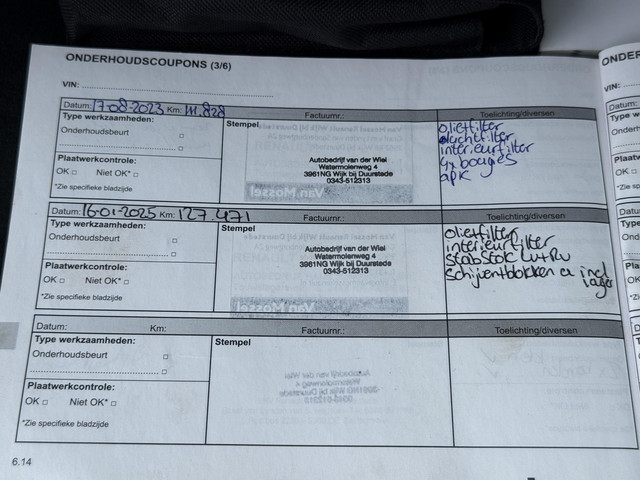 ONDERHOUDSCOUPONS (3/6)
VIN:
Datum: 17-08-2023 Km: 111.828 Factuurnr.: Toelichting/diversen
Type werkzaamheden:
Onderhoudsbeurt
Plaatwerkcontrole:
OK Niet OK*
*Zie specifieke bladzijde
Stempel
Autobedrijf van der Wiel
Watermolenweg 4
3961NG Wijk bij Duurstede
0343-512313
oliefilter
luchtfilter
interieurfilter
4x bougies
apk
Datum: 16-01-2025 Km: 127.471 Factuurnr.: Toelichting/diversen
Type werkzaamheden:
Onderhoudsbeurt
Plaatwerkcontrole:
OK Niet OK*
*Zie specifieke bladzijde
Stempel
Autobedrijf van der Wiel
Watermolenweg 4
3961NG Wijk bij Duurstede
0343-512313
oliefilter
interieurfilter
stabstok LV+RV
Schijven+blokken a incl
lager
Datum: Km: Factuurnr.: Toelichting/diversen
Type werkzaamheden:
Onderhoudsbeurt
Plaatwerkcontrole:
OK Niet OK*
*Zie specifieke bladzijde
Stempel
6.14
ONDER
VIN: